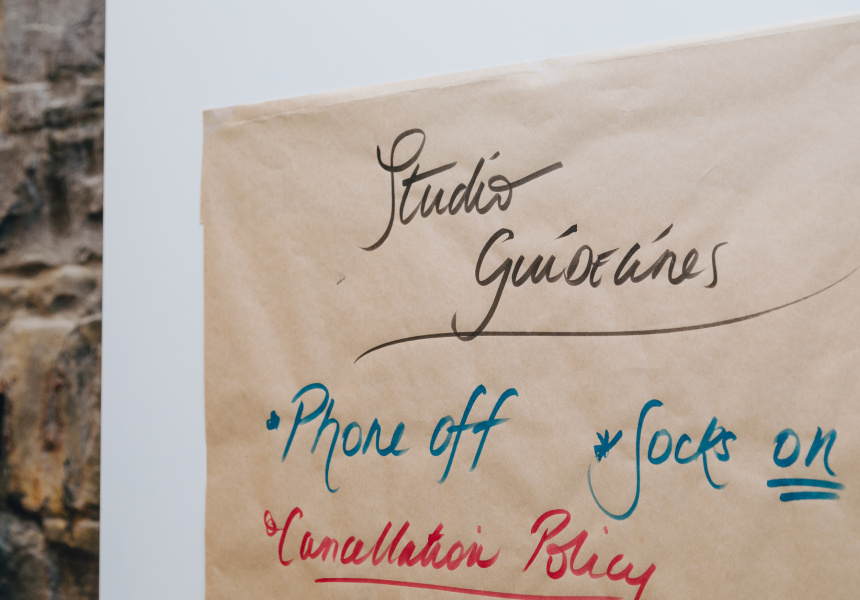 Studio
Guidelines
* Phone off * Socks on
* Cancellation Policy